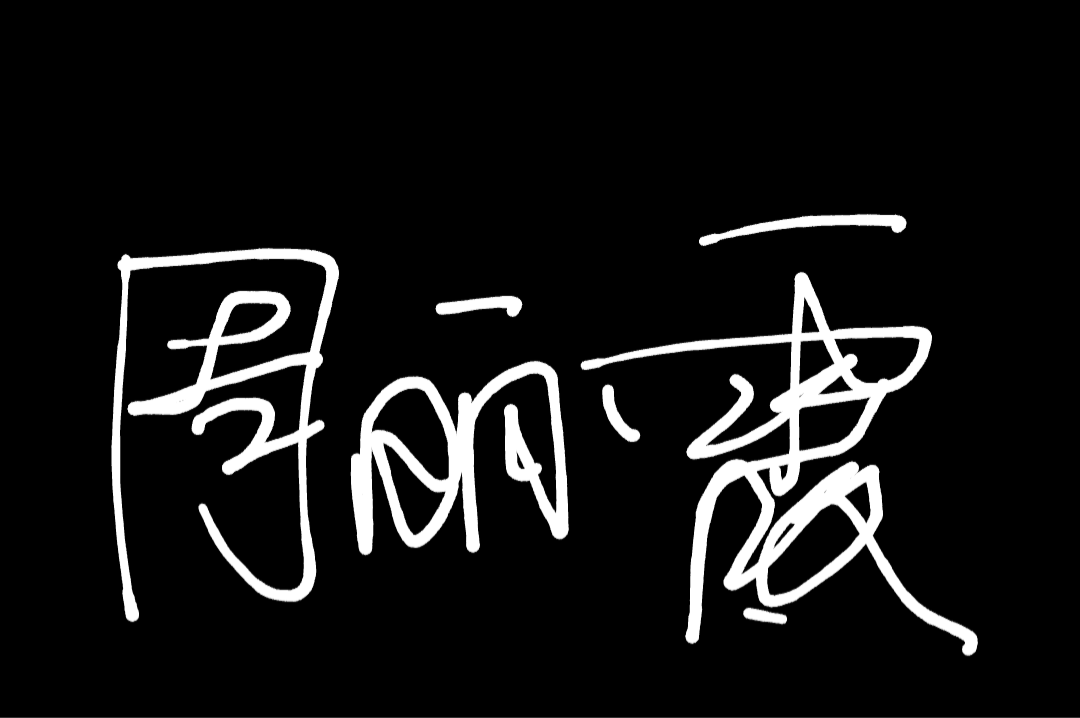 周丽霞